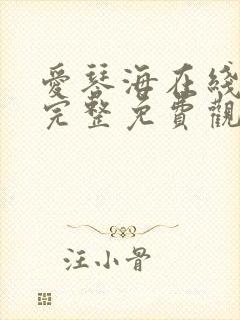 愛琴海在綫
完整免費觀
汪小骨